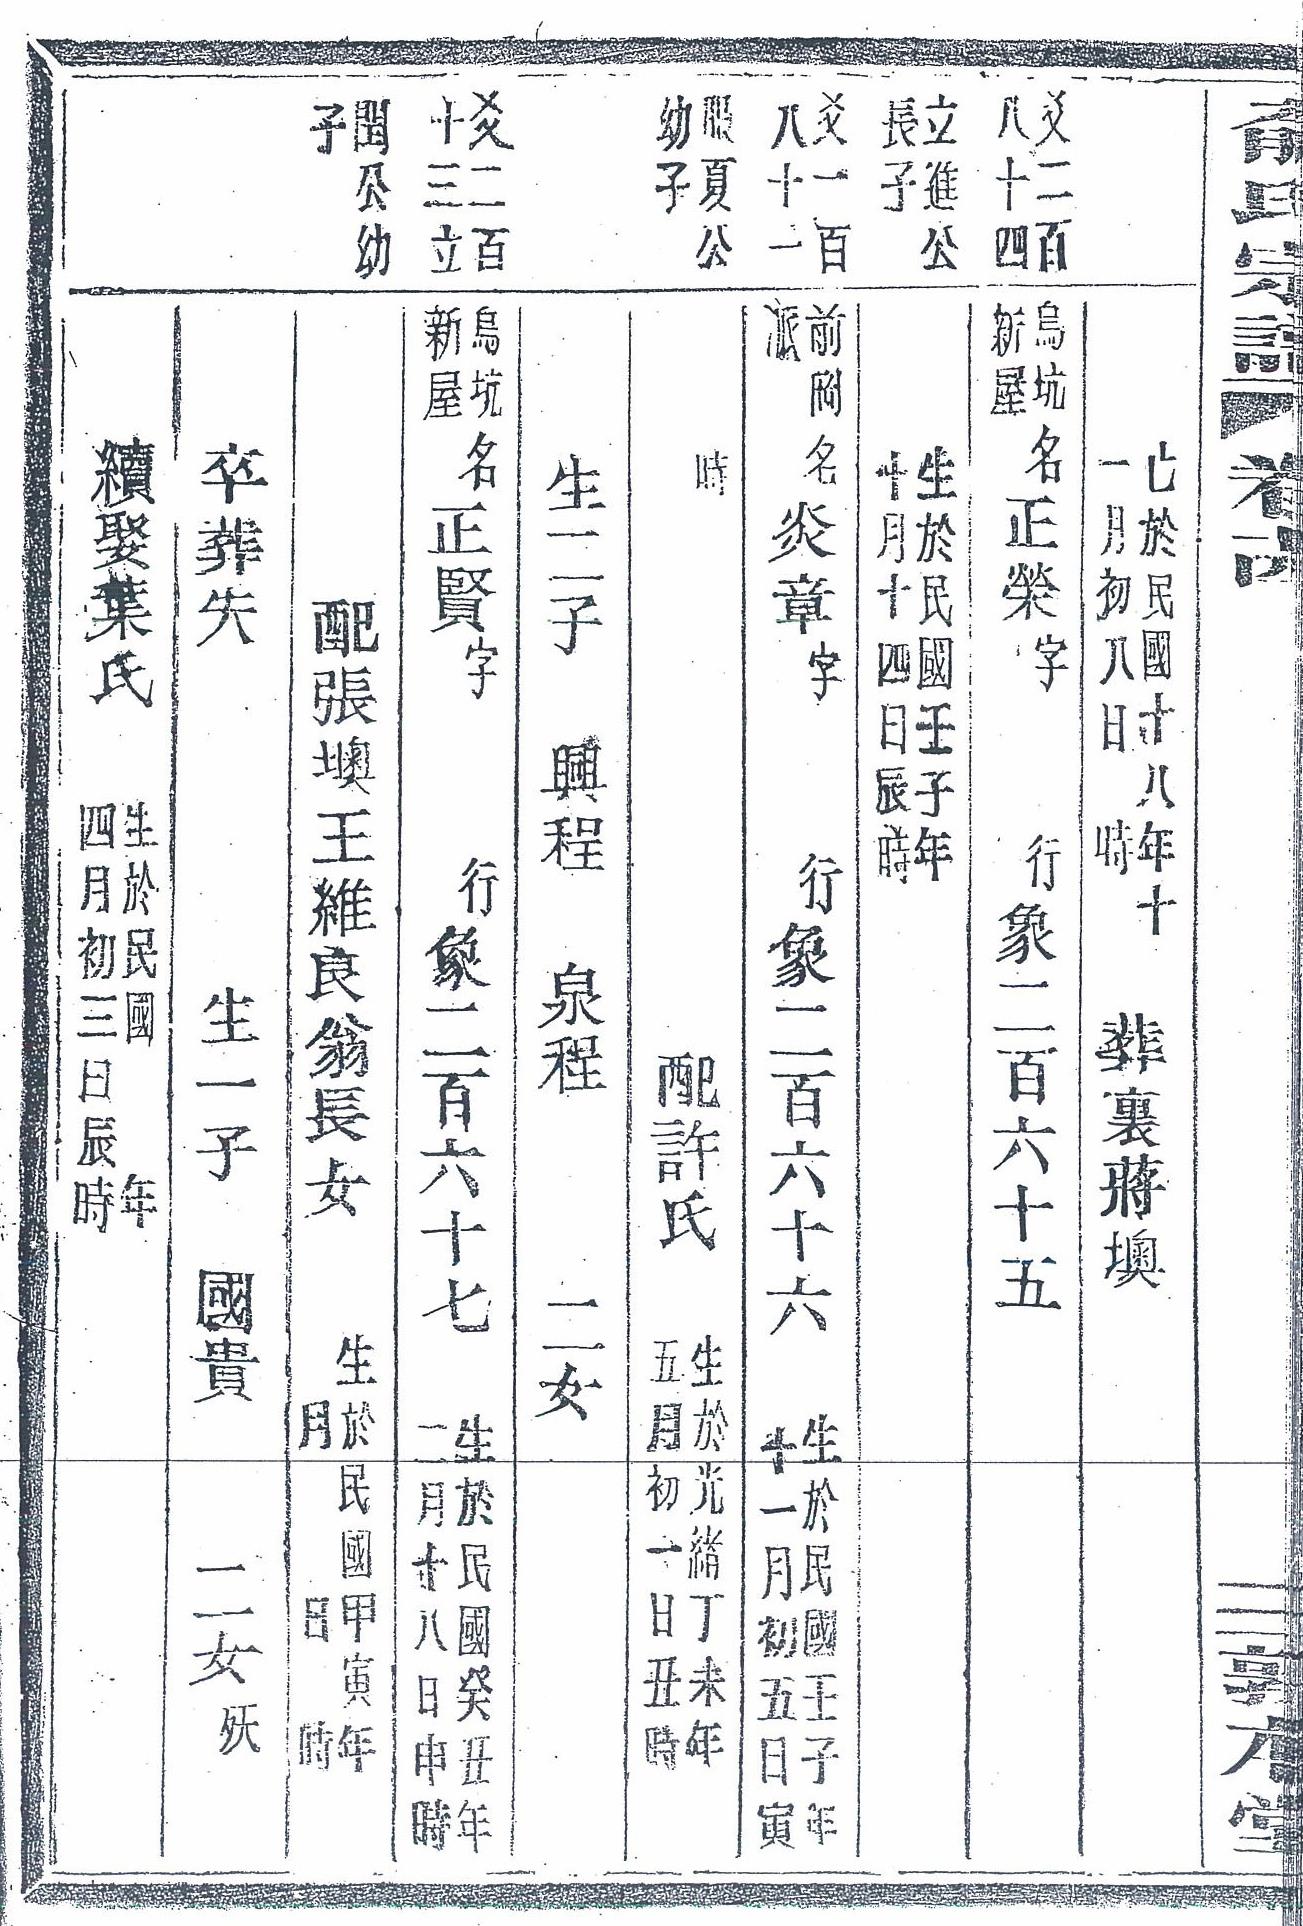 俞氏宗譜 卷六 三 敦本堂
亡於民國十八年十
一月初八日 時 葬裏蔣墺
爻二百
八十四
立進公
長子
烏坑
新屋
名正榮字 行象二百六十五
生於民國壬子年
十月十四日辰時
爻一百
八十一
服夏公
幼子
前岡
派
名炎章字 行象二百六十六 生於民國壬子年
十一月初五日寅
時 配許氏 生於光緒丁未年
五月初一日丑時
生二子 興程 泉程 二女
爻二百
十三立
閏公幼
子
烏坑
新屋
名正賢字 行象二百六十七 生於民國癸丑年
二月十八日申時
配張墺王維良翁長女 生於民國甲寅年
月 日 時
卒葬失 生一子 國貴 二女 殀
續娶葉氏 生於民國 年
四月初三日辰時